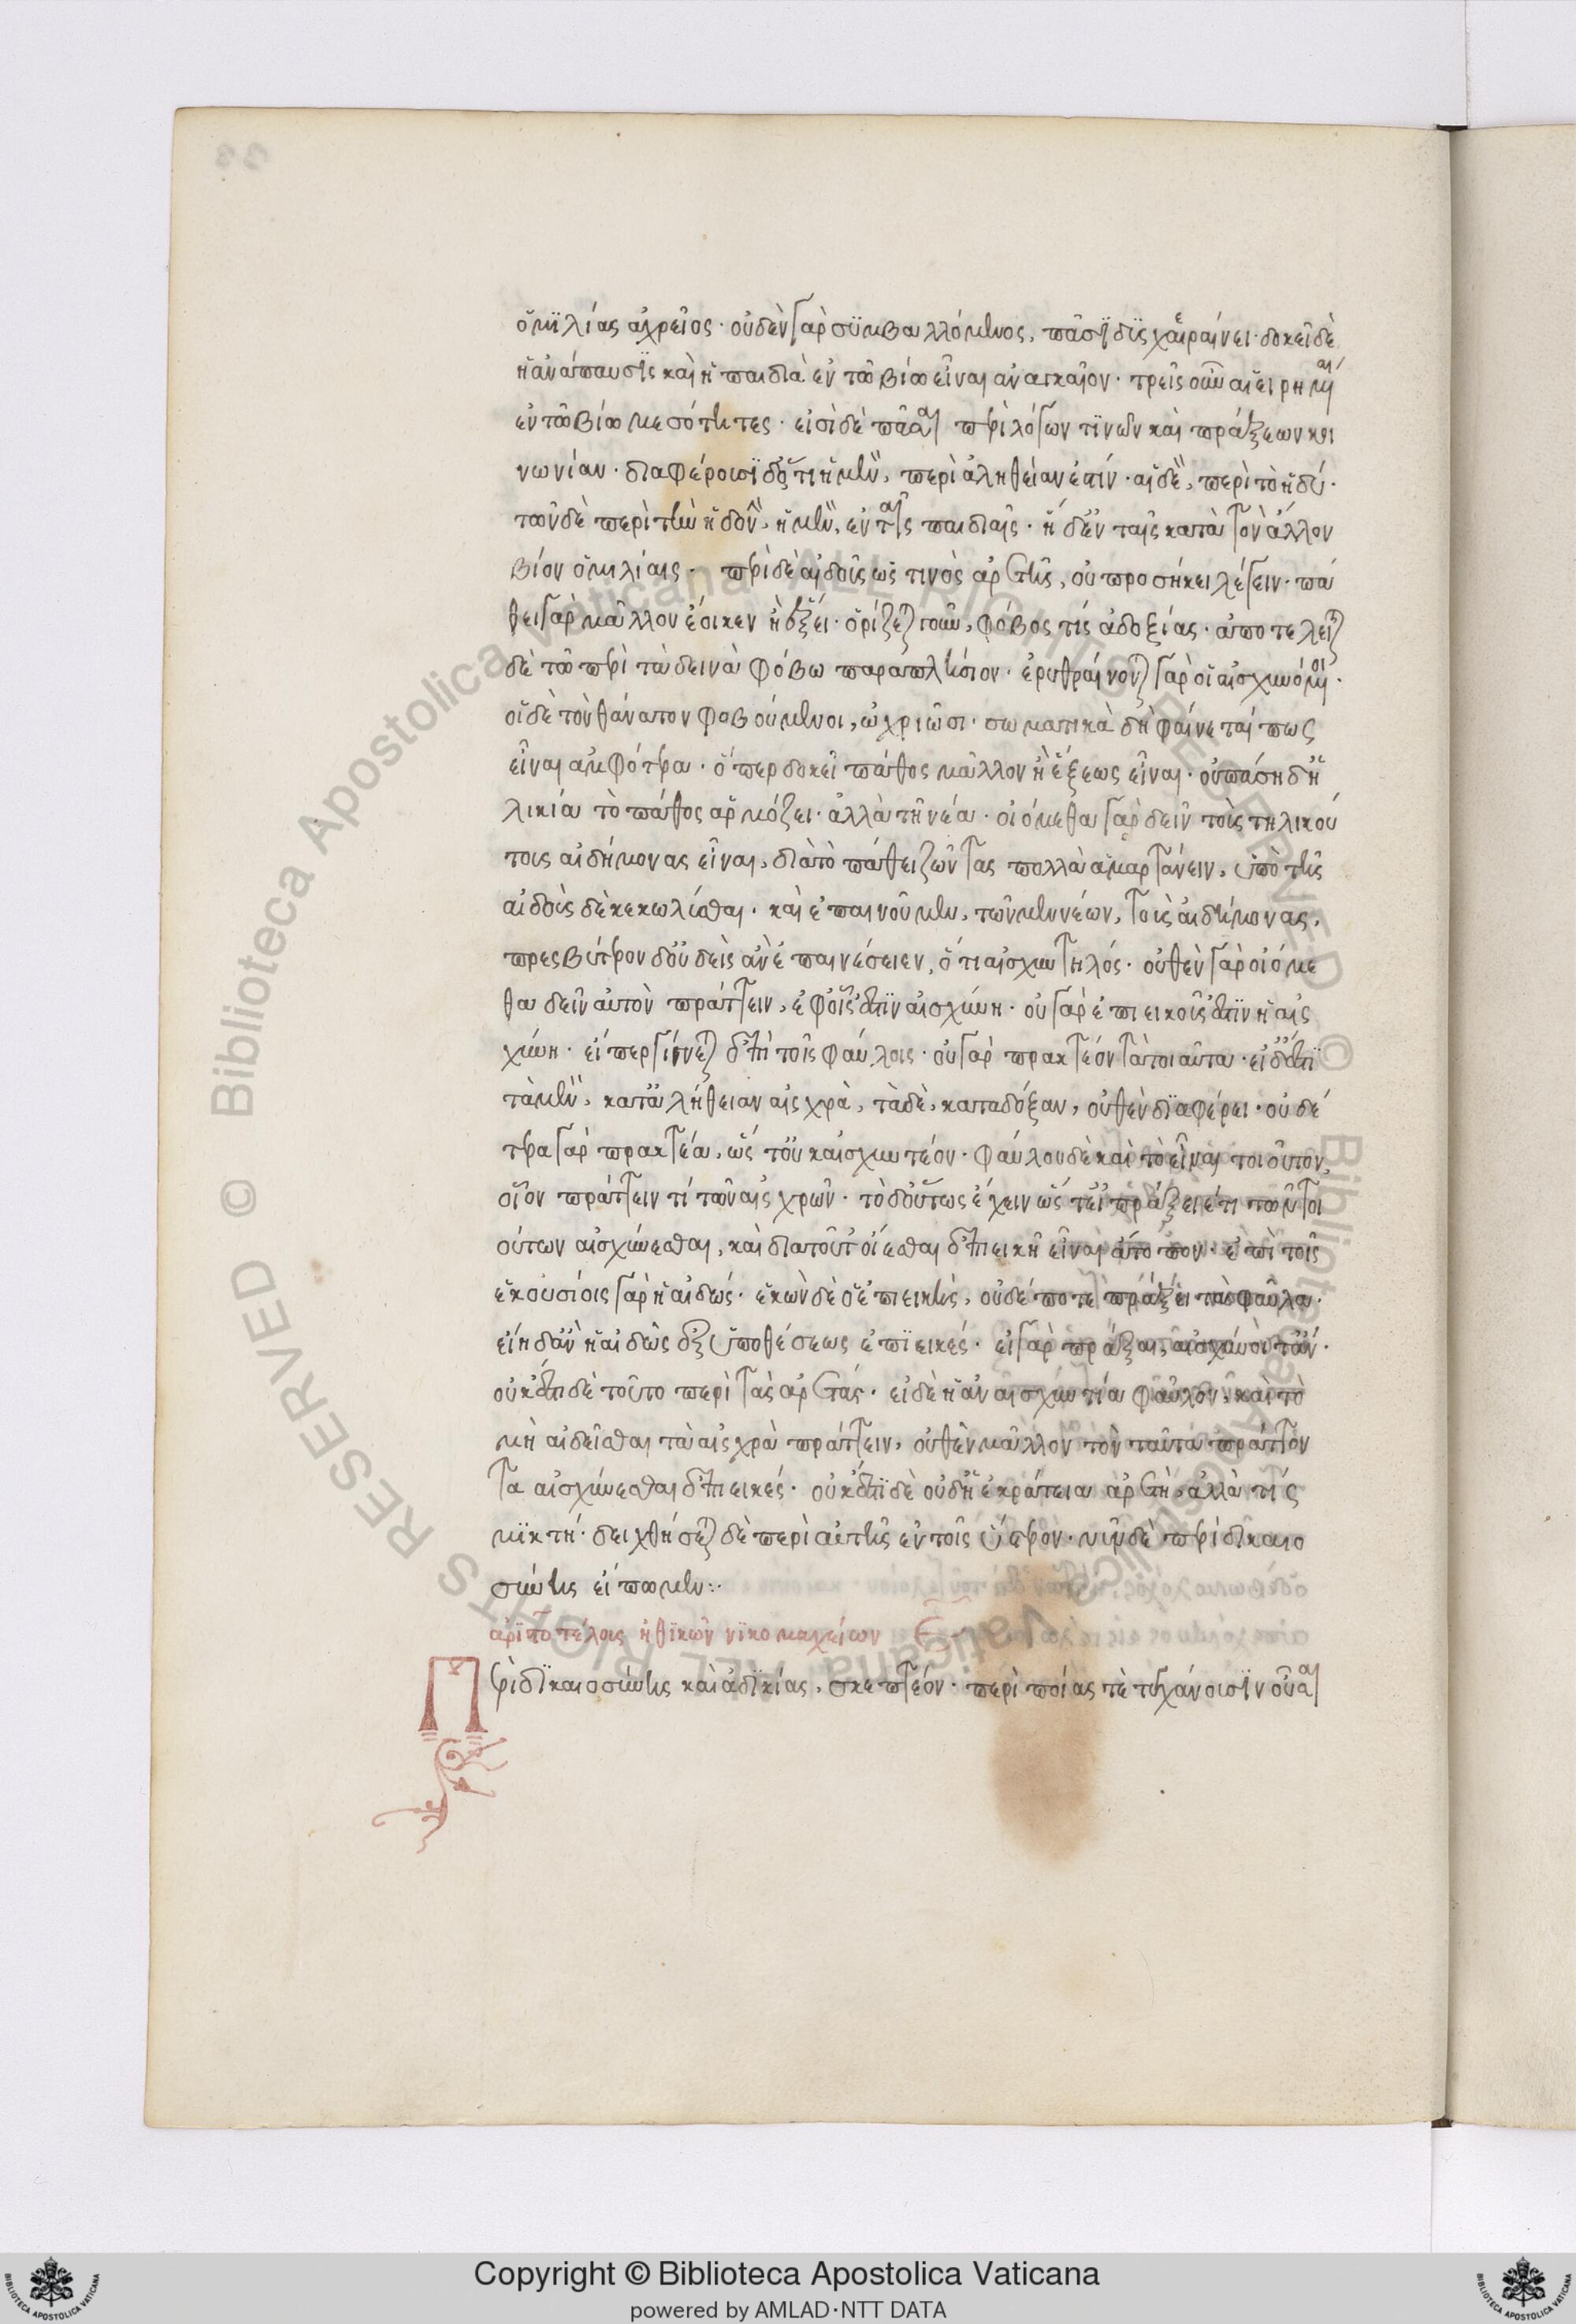 ὁμιλίας ἀχρεῖος· οὐδὲν γὰρ συμβαλλόμενος, πᾶσι δυσχεραίνει· δοκεῖ δὲ
ἡ ἀνάπαυσις καὶ ἡ παιδιὰ ἐν τῶ βίω εἶναι ἀναγκαῖον· τρεῖς οὖν αἱ εἰρημέναι
ἐν τῶ βίω μεσότητες· εἰσὶ δὲ πᾶσαι περὶ λόγων τινῶν καὶ πράξεων κοι
νωνίαν· διαφέρουσι δ' ὅτι ἡ μὲν, περὶ ἀλήθειάν ἐστίν· αἱ δὲ, περὶ τὸ ἡδύ·
τῶν δὲ περὶ τὴν ἡδονὴν, ἡ μὲν, ἐν ταῖς παιδιαῖς· ἡ δ' ἐν ταῖς κατὰ τὸν ἄλλον
βίον ὁμιλίαις· περὶ δὲ αἰδοῦς ὥς τινὸς ἀρετῆς, οὐ προσήκει λέγειν· πά
θει γὰρ μᾶλλον ἔοικεν ἢ ἕξει· ὁρίζεται οὖν, φόβος τίς ἀδοξίας· ἀποτελεῖται
δὲ τῶ περὶ τὰ δεινὰ φόβω παραπλήσιον· ἐρυθραίνονται γὰρ οἱ αἰσχυνόμενοι·
οἱ δὲ τὸν θάνατον φοβούμενοι, ὠχριῶσι· σωματικὰ δὴ φαίνεταί πως
εἶναι ἀμφότερα· ὅπερ δοκεῖ πάθος μᾶλλον ἢ ἕξεως εἶναι· οὐ πάση δ' ἡ
λικία τὸ πάθος ἁρμόζει· ἀλλὰ τῆ νέα· οἰόμεθα γὰρ δεῖν τοὺς τηλικού
τους αἰδήμονας εἶναι, διὰ τὸ πάθει ζῶντας πολλὰ ἁμαρτάνειν, ὑπὸ τῆς
αἰδοῦς δὲ κεκωλύσθαι· καὶ ἐπαινοῦμεν, τῶν μὲν νέων, τοὺς αἰδήμονας,
πρεσβύτερον δ' οὐδεὶς ἂν ἐπαινέσειεν, ὅτι αἰσχυντηλός· οὐθὲν γὰρ οἰόμε
θα δεῖν αὐτὸν πράττειν, ἐφ' οἷς ἐστὶν αἰσχύνη· οὐ γὰρ ἐπιεικοῦς ἐστὶν ἡ αἰσ
χύνη· εἴπερ γίνεται ἐπὶ τοῖς φαύλοις· οὐ γὰρ πρακτέον τὰ τοιαῦτα· εἰ δ' ἐστὶ
τὰ μὲν, κατ' ἀλήθειαν αἰσχρὰ, τὰ δὲ, κατὰ δόξαν, οὐθὲν διαφέρει· οὐδέ
τερα γὰρ πρακτέα, ὥστ' οὐκ αἰσχυντέον· φαύλου δὲ καὶ τὸ εἶναι τοιοῦτον,
οἷον πράττειν τί τῶν αἰσχρῶν· τὸ δ' οὕτως ἔχειν ὥστ' εἰ πράξειέ τι τῶν τοι
ούτων αἰσχύνεσθαι, καὶ διὰ τοῦτ' οἴεσθαι ἐπιεικῆ εἶναι ἄτοπον· ἐπὶ τοῖς
ἑκουσίοις γὰρ ἡ αἰδώς· ἑκὼν δὲ ὁ ἐπιεικὴς, οὐδέποτε πράξει τὰ φαῦλα·
εἴη δ' ἂν ἡ αἰδὼς ἐξ ὑποθέσεως ἐπιεικές· εἰ γὰρ πράξαι, αἰσχύνοιτ' ἄν·
οὐκ ἔστι δὲ τοῦτο περὶ τὰς ἀρετάς· εἰ δὲ ἡ ἀναισχυντία φαῦλον, καὶ τὸ
μὴ αἰδεῖσθαι τὰ αἰσχρὰ πράττειν, οὐθὲν μᾶλλον τὸν ταῦτα πράττον
τα αἰσχύνεσθαι ἐπιεικές· οὐκ ἔστι δὲ οὐδ' ἡ ἐγκράτεια ἀρετὴ, ἀλλὰ τίς
μικτή· δειχθήσεται δὲ περὶ αὐτῆς ἐν τοῖς ὕστερον· νῦν δὲ περὶ δικαιο
σύνης εἴπωμεν:·
ἀριστοτέλους ἠθικῶν νικομαχείων Ε
Περὶ δικαιοσύνης καὶ ἀδικίας, σκεπτέον· περὶ ποίας τὲ τυγχάνουσιν οὖσαι